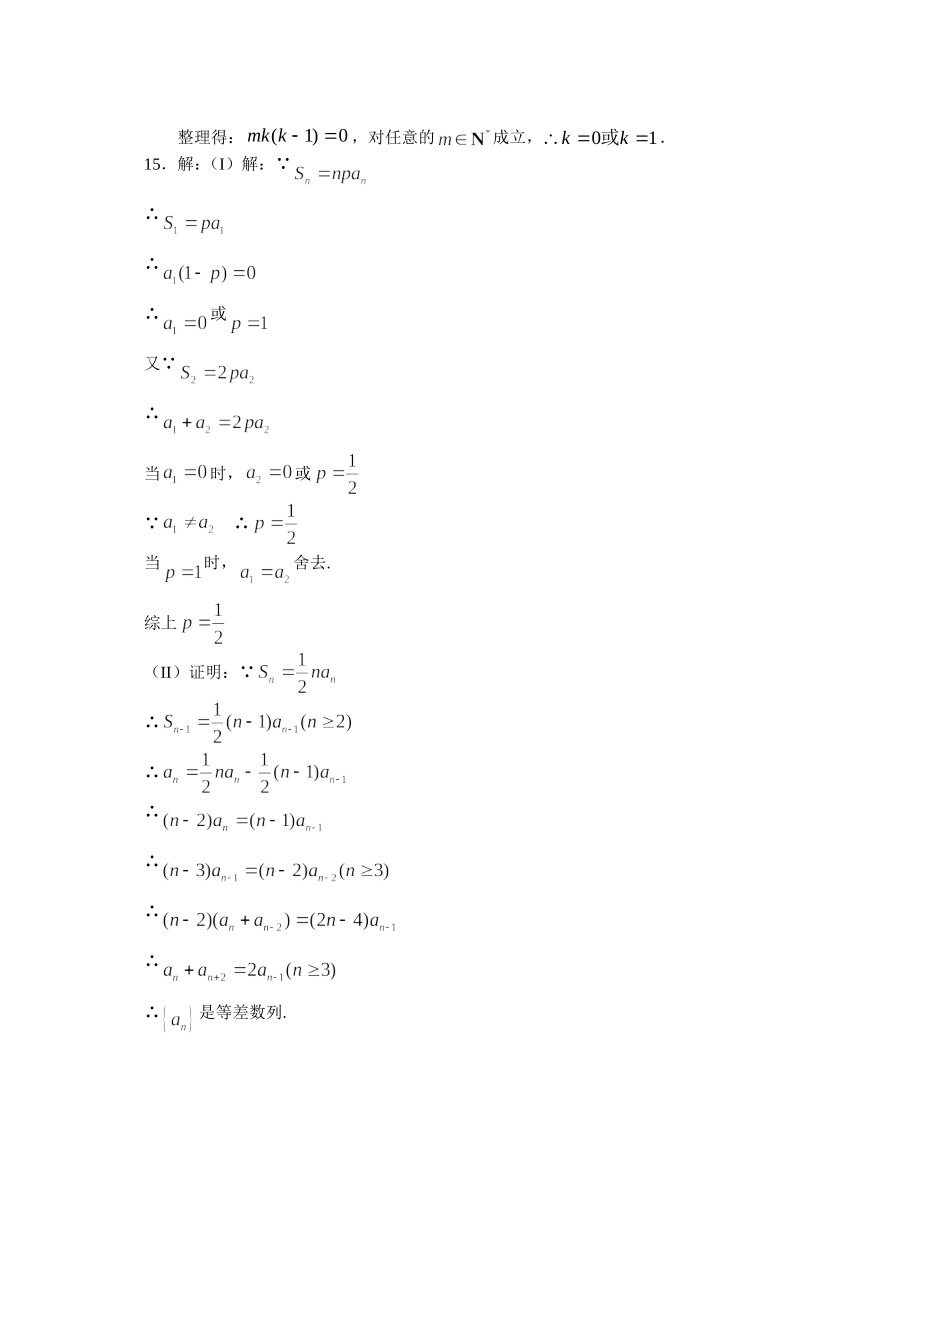 整理得：mk(k-1)=0，对任意的m∈N*成立，∴k=0或k=1.
15．解：（I）解：∵Sₙ=npaₙ
∴S₁=pa₁
∴a₁(1-p)=0
∴a₁=0或p=1
又∵S₂=2pa₂
∴a₁+a₂=2pa₂
当a₁=0时，a₂=0或p=1/2
∵a₁≠a₂ ∴p=1/2
当p=1时，a₁=a₂舍去.
综上p=1/2
（II）证明：∵Sₙ=1/2naₙ
∴Sₙ₋₁=1/2(n-1)aₙ₋₁(n≥2)
∴aₙ=1/2naₙ-1/2(n-1)aₙ₋₁
∴(n-2)aₙ=(n-1)aₙ₋₁
∴(n-3)aₙ₋₁=(n-2)aₙ₋₂(n≥3)
∴(n-2)(aₙ+aₙ₋₂)=(2n-4)aₙ₋₁
∴aₙ+aₙ₊₂=2aₙ₋₁(n≥3)
∴{aₙ}是等差数列.